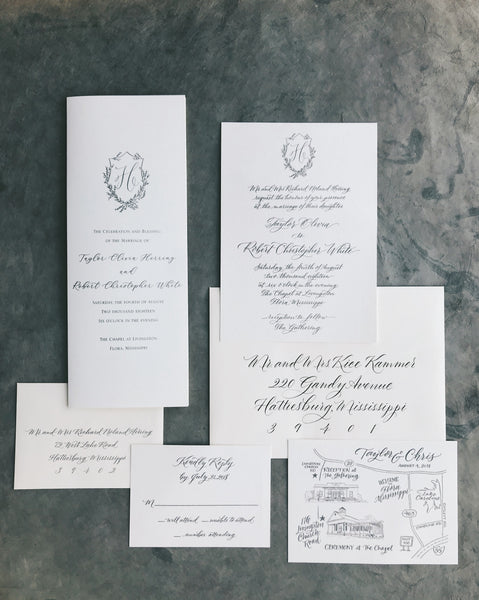 H
THE CELEBRATION AND BLESSING
OF THE MARRIAGE OF
Taylor Olivia Herring
and
Robert Christopher White
SATURDAY, THE FOURTH OF AUGUST
TWO THOUSAND EIGHTEEN
SIX O'CLOCK IN THE EVENING
THE CHAPEL AT LIVINGSTON
FLORA, MISSISSIPPI
H
Mr. and Mrs. Richard Noland Herring
request the honour of your presence
at the marriage of their daughter
Taylor Olivia
to
Robert Christopher White
Saturday, the fourth of August
two thousand eighteen
at six o'clock in the evening
The Chapel at Livingston
Flora, Mississippi
reception to follow
The Gathering
Mr. and Mrs. Kice Kammer
220 Gandy Avenue
Hattiesburg, Mississippi
39401
Mr. and Mrs. Richard Noland Herring
Lake Road
Hattiesburg, Mississippi
39402
Kindly Reply
by July 21, 2018
M
will attend unable to attend
number attending
Taylor & Chris
AUGUST 4, 2018
RECEPTION AT
The Gathering
WELCOME
to Flora,
Mississippi
Lake
Livingston
Church
Road
CEREMONY AT The Chapel